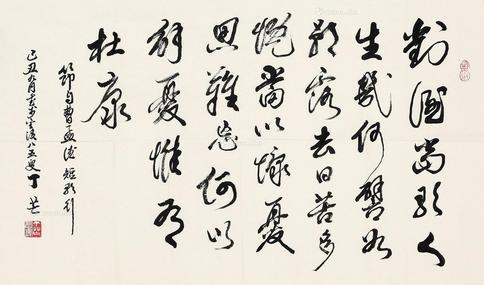 對酒當歌人
生幾何譬如
朝露去日苦多
慨當以慷憂
思難忘何以
解憂惟有
杜康
節自曹孟德短歌行
己丑九月 八五叟丁芒